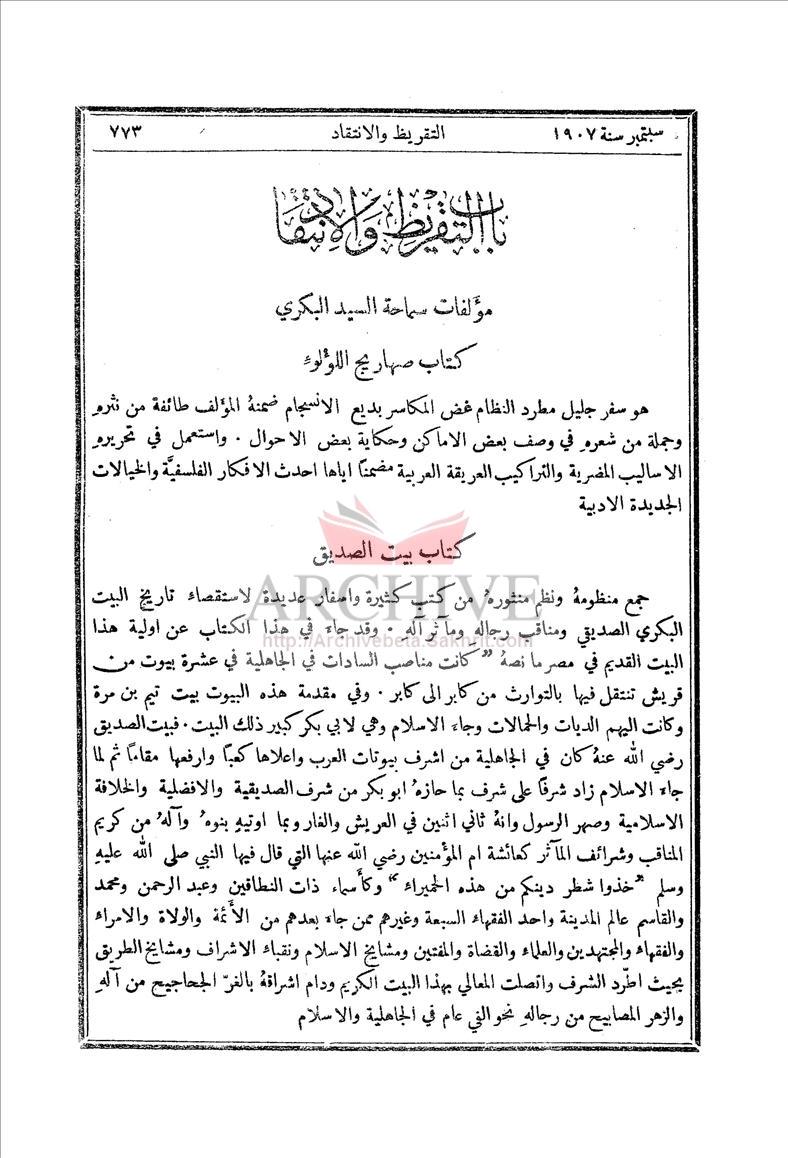 سبتمبر سنة ١٩٠٧ التقريظ والانتقاد ٧٧٣
باب التقريظ والانتقاد
مؤلفات سماحة السيد البكري
كتاب صهاريج اللؤلوء
هو سفر جليل مطرد النظام غض المكاسر بديع الانسجام ضمنهُ المؤلف طائفة من نثرهِ
وجملة من شعرهِ في وصف بعض الاماكن وحكاية بعض الاحوال . واستعمل في تحريرهِ
الاساليب المضرية والتراكيب العريقة العربية مضمناً اياها احدث الافكار الفلسفيَّة والخيالات
الجديدة الادبية
كتاب بيت الصديق
جمع منظومهُ ونظم منثورهُ من كتب كثيرة واسفار عديدة لاستقصاء تاريخ البيت
البكري الصديقي ومناقب رجاله ومآثر آله . وقد جاء في هذا الكتاب عن اولية هذا
البيت القديم في مصر ما نصهُ " كانت مناصب السادات في الجاهلية في عشرة بيوت من
قريش تنتقل فيها بالتوارث من كابر الى كابر . وفي مقدمة هذه البيوت بيت تيم بن مرة
وكانت اليهم الديات والحمالات وجاء الاسلام وهي لابي بكر كبير ذلك البيت . فبيت الصديق
رضي الله عنهُ كان في الجاهلية من اشرف بيوتات العرب واعلاها كعباً وارفعها مقاماً ثم لما
جاء الاسلام زاد شرفاً على شرف بما حازهُ ابو بكر من شرف الصديقية والافضلية والخلافة
الاسلامية وصهر الرسول وانهُ ثاني اثنين في العريش والغار وبما اوتيهِ بنوهُ وآلهُ من كريم
المناقب وشرائف المآثر كعائشة ام المؤمنين رضي الله عنها التي قال فيها النبي صلى الله عليهِ
وسلم "خذوا شطر دينكم من هذه الحميراء" وكأسماء ذات النطاقين وعبد الرحمن ومحمد
والقاسم عالم المدينة واحد الفقهاء السبعة وغيرهم ممن جاء بعدهم من الأئمة والولاة والامراء
والفقهاء والمجتهدين والعلماء والقضاة والمفتين ومشايخ الاسلام ونقباء الاشراف ومشايخ الطريق
بحيث اطّرد الشرف واتصلت المعالي بهذا البيت الكريم ودام اشراقهُ بالغرّ الجحاجيح من آلهِ
والزهر المصابيح من رجالهِ نحو الفي عام في الجاهلية والاسلام
ARCHIVE
http://Archivebeta.Sakhrit.com